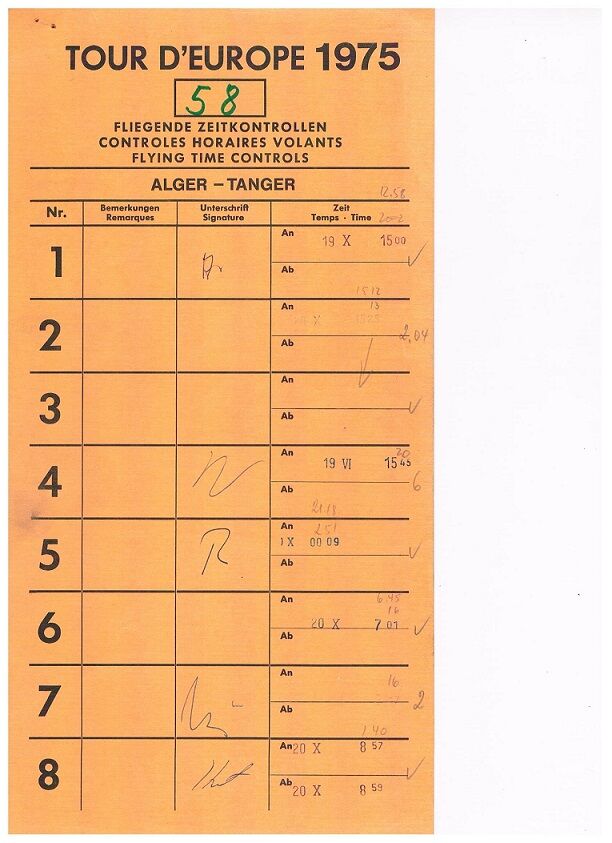 TOUR D'EUROPE 1975
58
FLIEGENDE ZEITKONTROLLEN
CONTROLES HORAIRES VOLANTS
FLYING TIME CONTROLS
ALGER – TANGER
12.58
Nr.
Bemerkungen
Remarques
Unterschrift
Signature
Zeit
Temps · Time
1
An
19 X 15 00
Ab
2
An
Ab
2,04
3
An
Ab
4
An
19 VI 15 45
20
Ab
6
5
An
1X 00 09
Ab
6
An
6.45
16
20 X 7 01
Ab
7
An
16
Ab
2
1.40
8
An 20 X 8 57
Ab 20 X 8 59